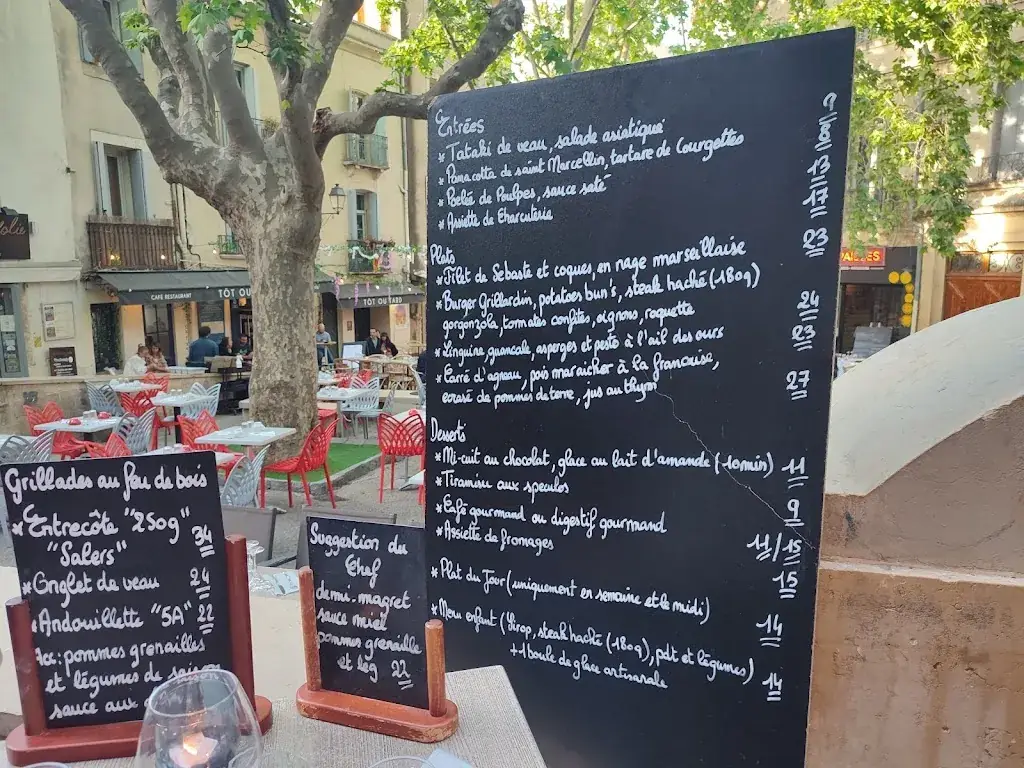 Entrées
* Tataki de veau, salade asiatique 9/100
* Panacotta de saint Marcellin, tartare de Courgettes 13
* Poêlée de Poulpes, sauce saté 17
* Assiette de Charcuterie 23
Plats
* Filet de Sebaste et coques, en nage marseillaise
* Burger Grillardin, potatoes bun's, steak haché (180g) 24
gorgonzola, tomates confites, oignons, roquette
* Linguine, guancale, asperges et pesto à l'ail des ours 23
* Carré d'agneau, pois maraicher à la francaise, 27
ecrasé de pommes de terre, jus au thym
Desserts
* Mi-cuit au chocolat, glace au lait d'amande (10min) 11
* Tiramisu aux speculos 9
* Café gourmand ou digestif gourmand 11/15
* Assiette de fromages 15
* Plat du Jour (uniquement en semaine et le midi) 14
* Menu enfant (Sirop, steak haché (180g), pdt et légumes) 14
+ 1 boule de glace artisanale
Grillades au feu de bois
* Entrecôte "250g" 34
"Salers"
* Onglet de veau 24
* Andouillette "5A" 22
Acc: pommes grenailles
et légumes de saison
sauce aux
Suggestion du
Chef
demi-magret
sauce miel
pommes grenaille
et leg 22
CAFÉ RESTAURANT TÔT OU
TÔT OU TARD